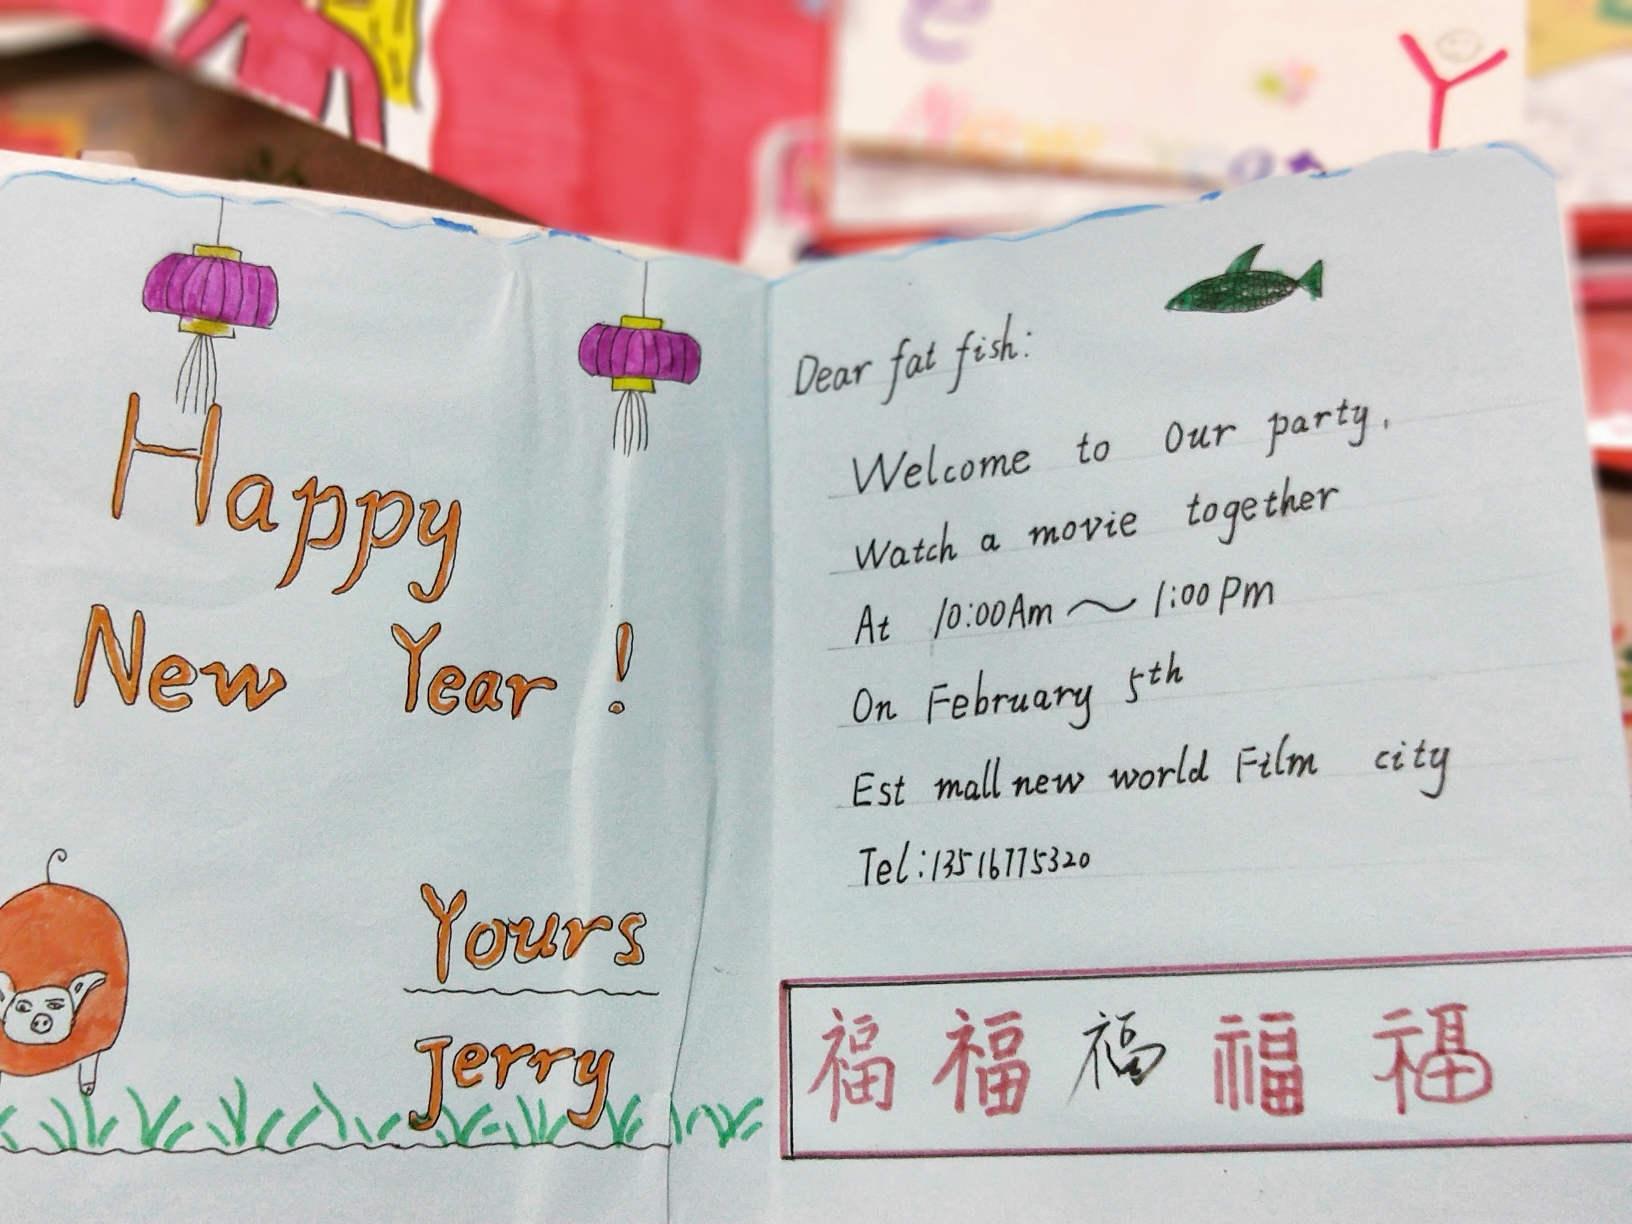 Happy
New Year !
Yours
Jerry
Dear fat fish:
Welcome to Our party.
Watch a movie together
At 10:00Am ～ 1:00 Pm
On February 5th
Est mall new world Film city
Tel:13516775320
福 福 福 福 福
e
New Year
Y